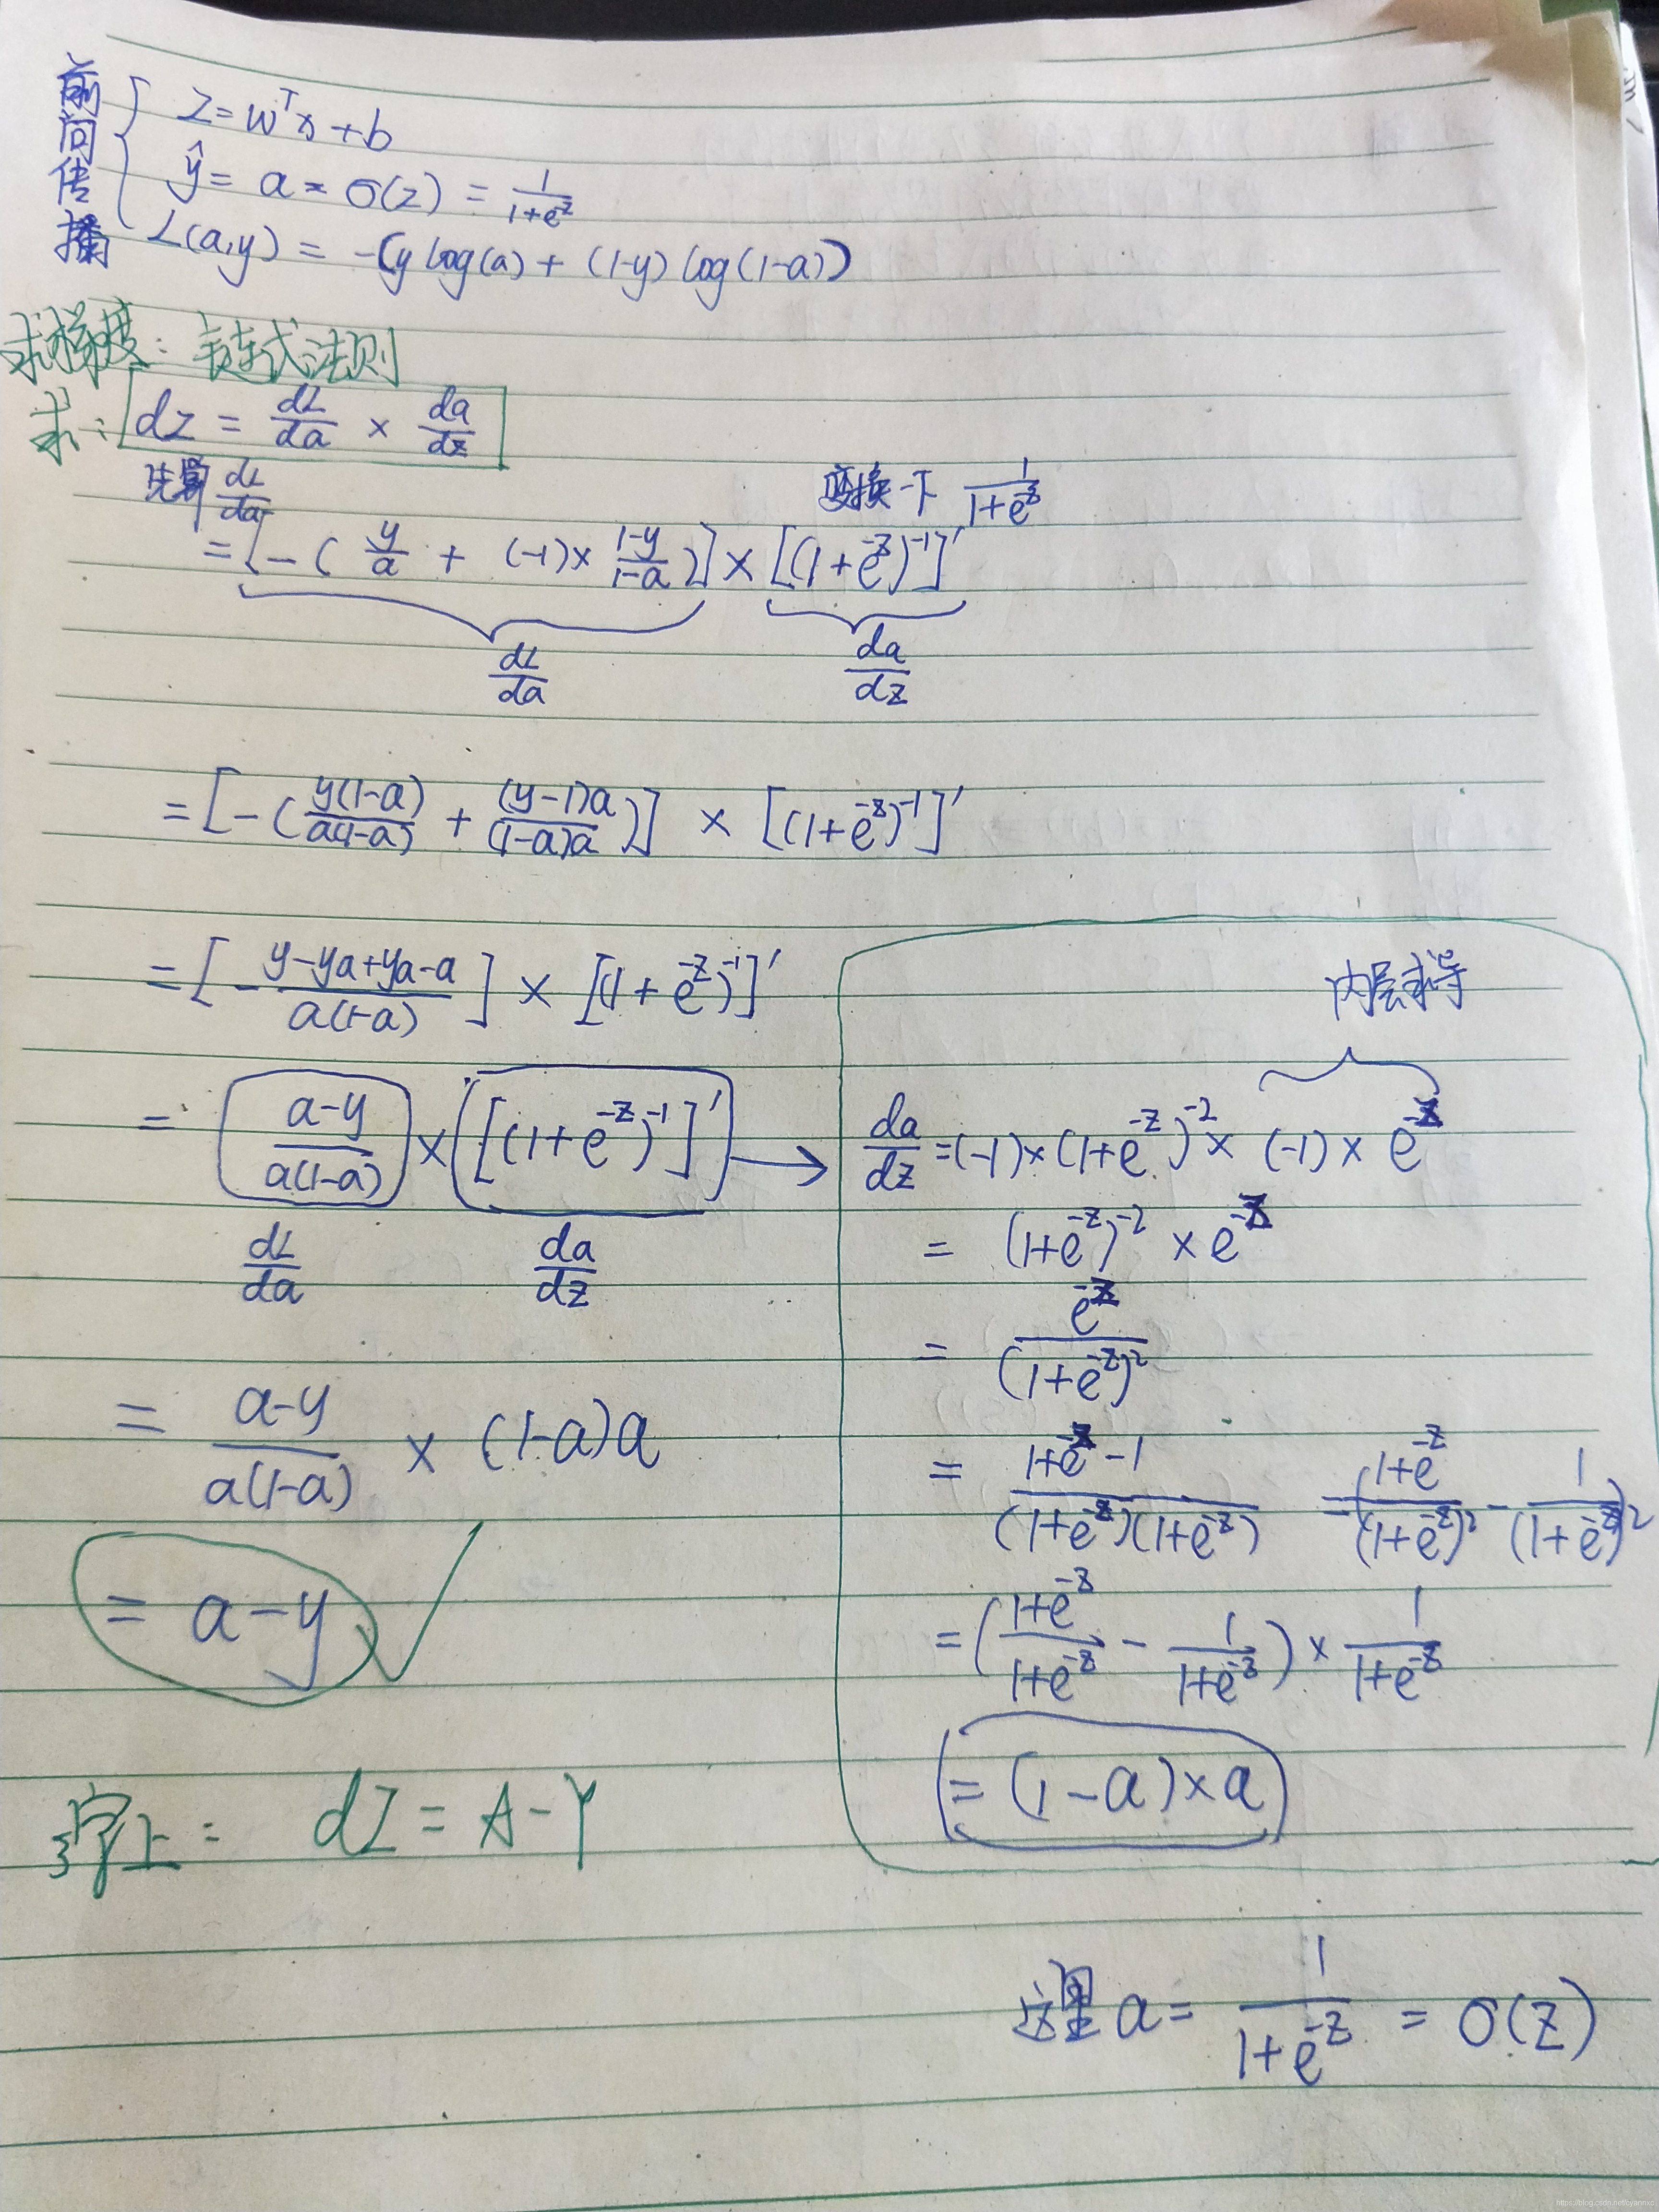 前向传播
z = wᵀx + b
ŷ = a = σ(z) = 1/(1+e^-z)
L(a,y) = -(y log(a) + (1-y) log(1-a))
求梯度: 链式法则
求: dz = dL/da × da/dz
先算 dL/da
变换一下 1/(1+e^-z)
= [-( y/a + (-1)× (1-y)/(1-a) )] × [(1+e^-z)^-1]'
dL/da
da/dz
= [-( y(1-a)/a(1-a) + (y-1)a/(1-a)a )] × [(1+e^-z)^-1]'
= [- (y-ya+ya-a)/a(1-a) ] × [(1+e^-z)^-1]'
= (a-y)/a(1-a) × [(1+e^-z)^-1]' →
dL/da
da/dz
= (a-y)/a(1-a) × (1-a)a
= a-y
内层求导
da/dz = (-1)×(1+e^-z)^-2 × (-1) × e^-z
= (1+e^-z)^-2 × e^-z
= e^-z/(1+e^-z)^2
= (1+e^-z-1)/(1+e^-z)(1+e^-z) = (1+e^-z)/(1+e^-z)^2 - 1/(1+e^-z)^2
= ( (1+e^-z)/(1+e^-z) - 1/(1+e^-z) ) × 1/(1+e^-z)
= (1-a)×a
上: dZ = A-Y
这里 a = 1/(1+e^-z) = σ(z)